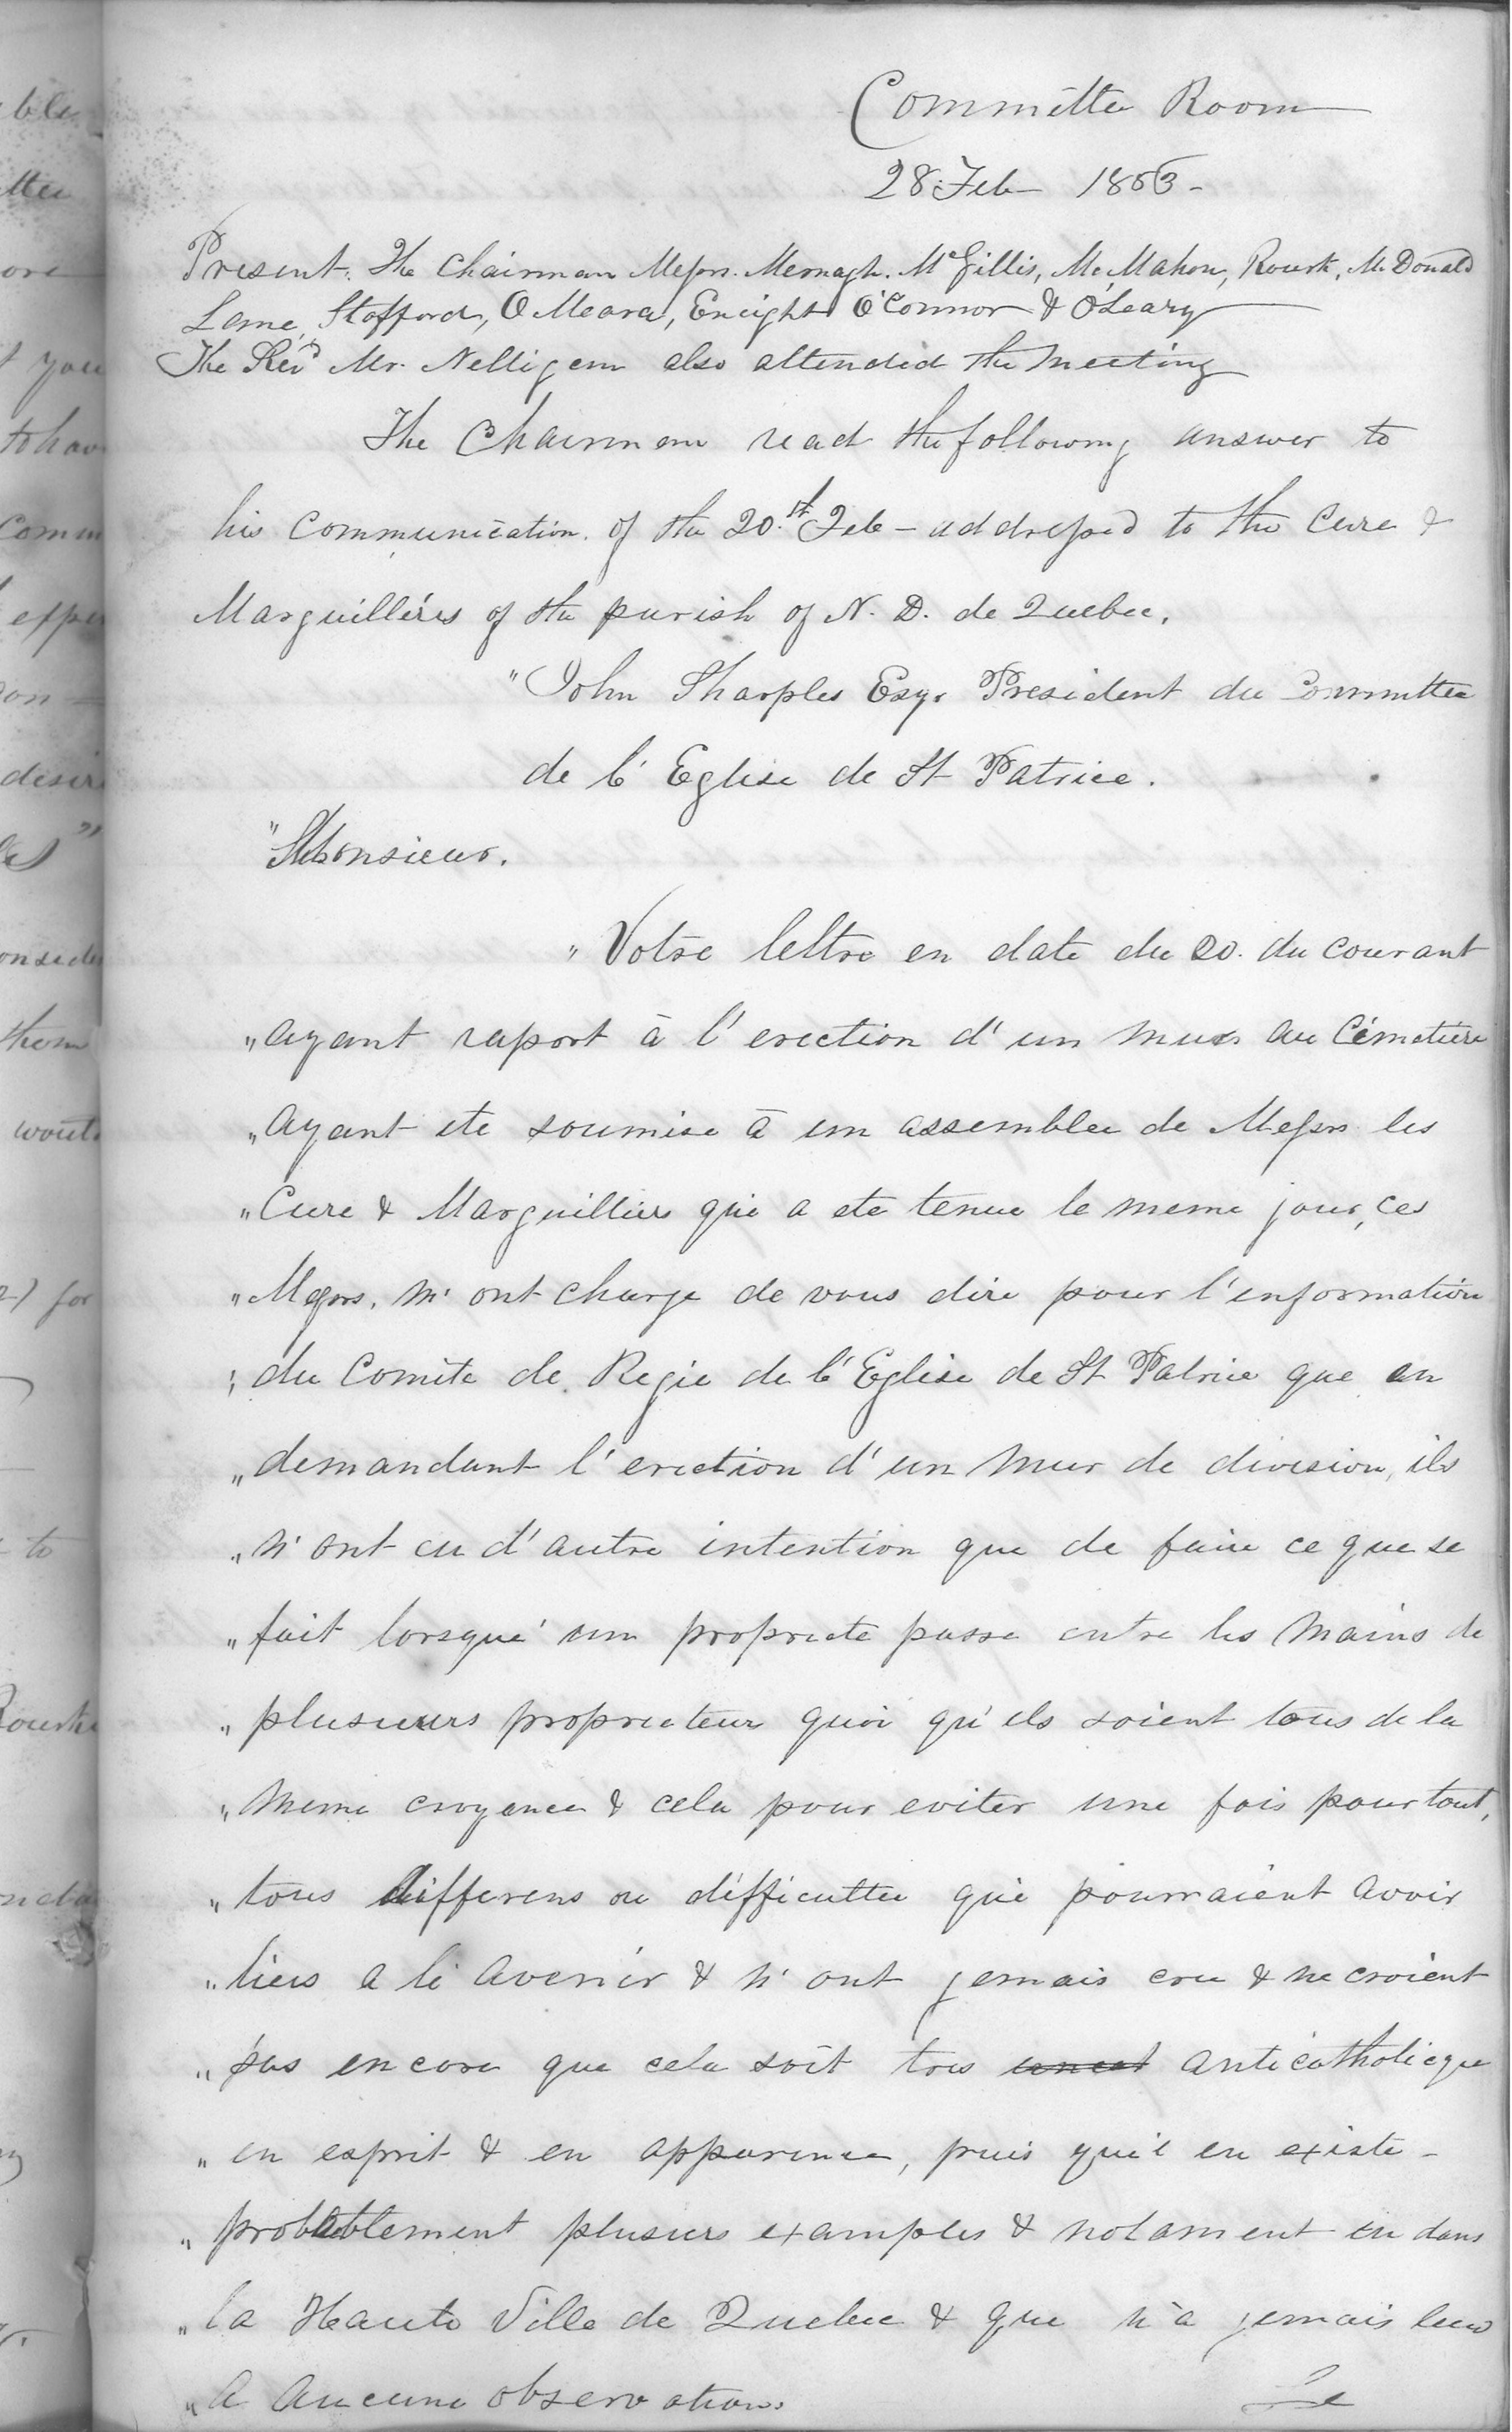 Committee Room
28 Feb 1863 -
Present. The Chairman Messrs. Mernagh. McGillis, McMahon, Rourk, McDonald
Lane, Stafford, O'Meara, Enright O'Connor & O'Leary
The Revd Mr. Nelligan also attended the meeting
The Chairman read the following answer to
his communication of the 20th Feb - addressed to the Cure &
Marguilliérs of the parish of N. D. de Quebec,
"John Sharples Esqr President du Committee
de l'Eglise de St Patrice.
"Monsieur.
"Votre lettre en date du 20. du courant
"ayant raport à l'erection d'un mur au Cémetiére
"ayant ete soumise à un assemblee de Messrs les
"Cure & Marguilliers qui a ete tenue le meme jour, ces
"Messrs. m'ont charge de vous dire pour l'enformation
"du Comite de Regie de l'Eglise de St Patrice que en
"demandant l'erection d'un mur de division, ils
"n'ont eu d'autre intention que de faire ce que se
"fait lorsque' un propriete passe entre les mains de
"plusieurs proprieteur quoi qu'ils soient tous de la
"meme croyance & cela pour eviter une fois pour tout,
"tous differens ou difficultee qui pourraient avoir
"lieu a le avenir & n'ont jemais cru & ne croient
"pas encore que cela soit tres anticatholicque
"en esprit & en apparence, puis qu'il en existe -
"probablement plusiers examples & notament en dans
"la Haute Ville de Quebec & que n'a jemais lieu
"a aucune observations
Le